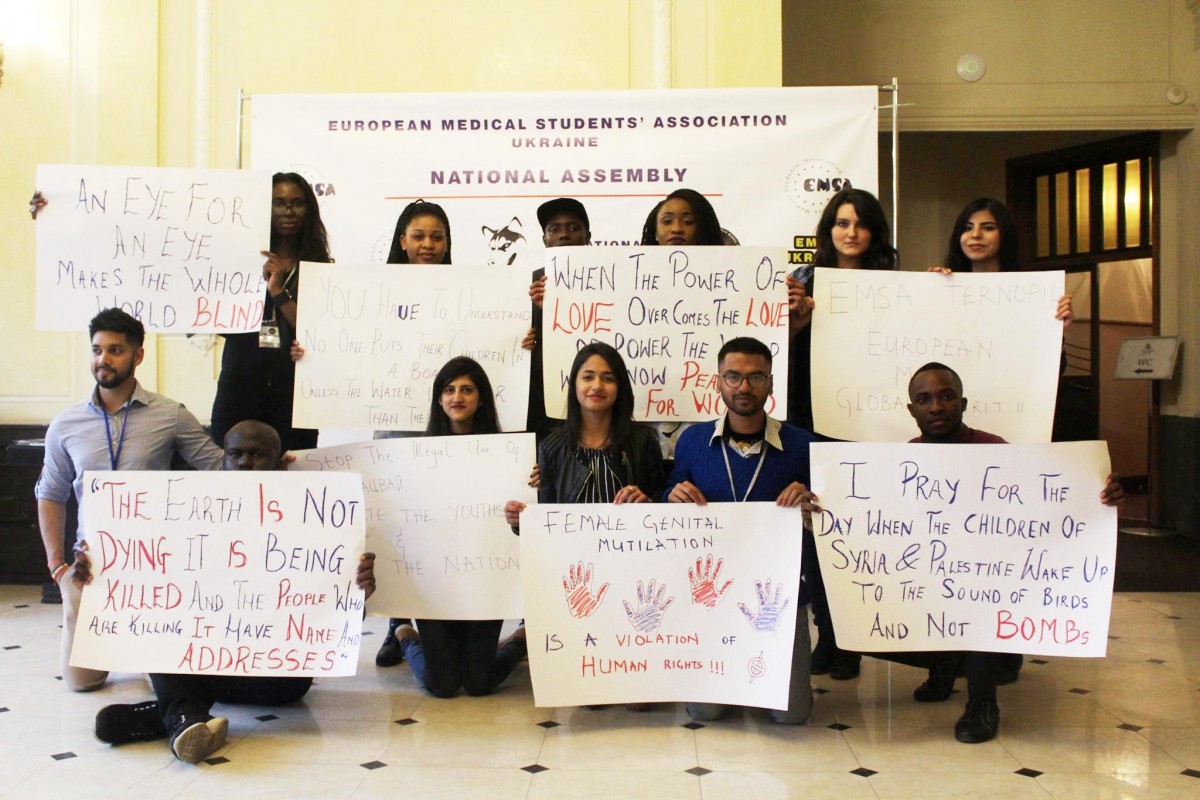 EUROPEAN MEDICAL STUDENTS' ASSOCIATION
UKRAINE
NATIONAL ASSEMBLY
EMSA
AN EYE FOR
AN EYE
MAKES THE WHOLE
WORLD BLIND
YOU HAVE TO UNDERSTAND
NO ONE PUTS THEIR CHILDREN IN
A BOA
UNLESS THE WATER
THAN THE
WHEN THE POWER OF
LOVE OVER COMES THE LOVE
OF POWER THE
NOW PEA
FOR WO
EMSA TERNOPIL
EUROPEAN
GLOBA
STOP THE ILLEGAL USE OF
THE YOUTHS
&
THE NATION
"THE EARTH IS NOT
DYING IT IS BEING
KILLED AND THE PEOPLE WHO
ARE KILLING IT HAVE NAME AND
ADDRESSES"
FEMALE GENITAL
MUTILATION
IS A VIOLATION OF
HUMAN RIGHTS !!!
I PRAY FOR THE
DAY WHEN THE CHILDREN OF
SYRIA & PALESTINE WAKE UP
TO THE SOUND OF BIRDS
AND NOT BOMBS